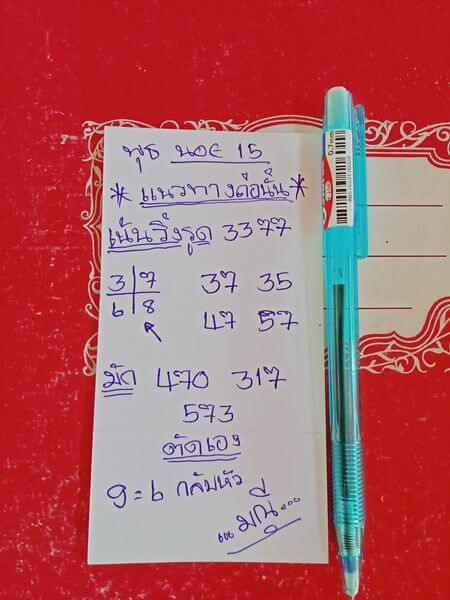 พุธ นอย 15
*แนวทางดอนั้น*
เน้นวิ่งรูด 3377
3 7 37 35
6 8 47 57
มัด 470 317
573
ตัดเอง
9=6 กลับหัว
...มณี...
0.7mm